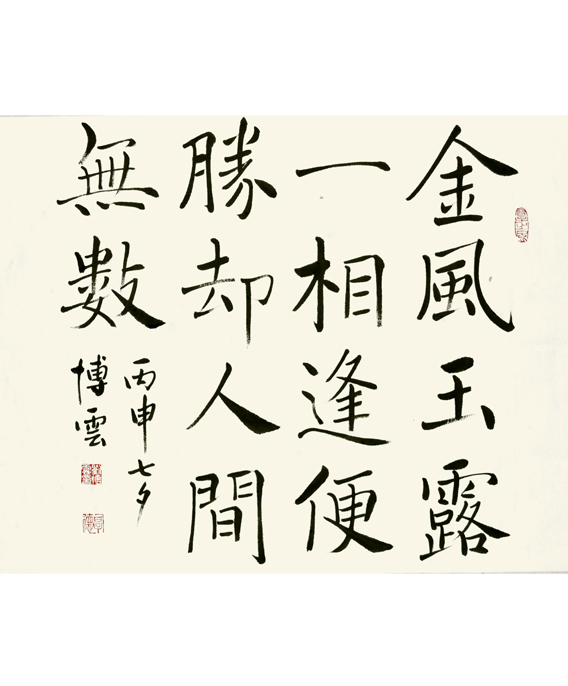 金風玉露
一相逢便
勝却人間
無數
丙申七夕
博雲